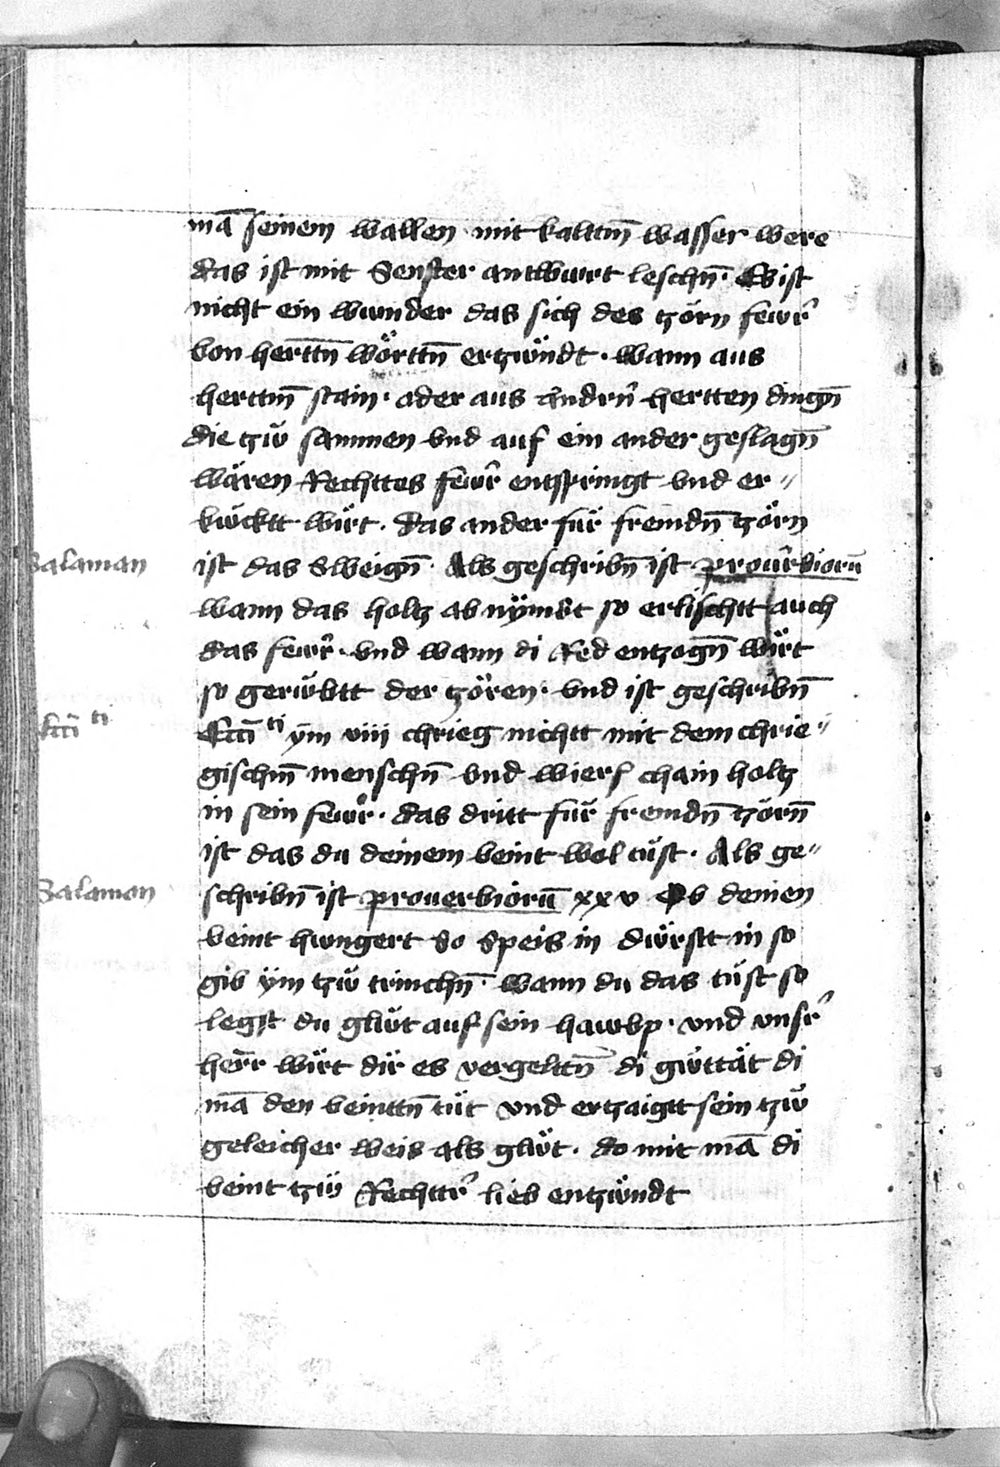 mā seinem wallen mit kalttm̄ wasser were
das ist mit Senfter antwurt leschn̄. Es ist
nicht ein wunder das sich des tzörn fewr̄
von herttn̄ wörttn̄ ertzwndt. wann aus
herttm̄ stain. ader aus andrn̄ hertten dingn̄
die tzẅ sammen vnd auf ein ander geslagn̄
wären Rechttes fewr̄ entspringt vnd er⸗
kẅcktt wirt. Das ander für fremdn̄ tzörn
Salaman
ist das Sweign̄. Als geschribn̄ ist prouerbiorū
wann das holtz ab nÿmbt so erlischtt auch
das fewr̄. vnd wann di Red entzogn̄ wirt
so gerẅbtt der tzören. vnd ist geschribn̄
Ecc̄i ti
Ecc̄i ti ÿm viii chrieg nichtt mit dem chrie⸗
gischm̄ menschn̄ vnd wierf chain holtz
in sein fewr. das dritt für fremdn̄ tzörn̄
ist das du deinem veint wol tüst. Als ge⸗
Salamon
schribn̄ ist prouerbiorū xxv Ob deinen
veint hwngert So Speis in dẅrstt in so
gib ÿm tzẅ trinchn̄. wann du das tüst so
legst du glẅt auf sein hawbp. vnd vnsr̄
herr wirt dir es vergelttn̄ di gẅttät di
mā den veinttn̄ tüt vnd ertzaigtt sein tzẅ
geleicher weis als glẅt. do mit mā di
veint tzẅ Rechttr̄ lieb entzẅndt